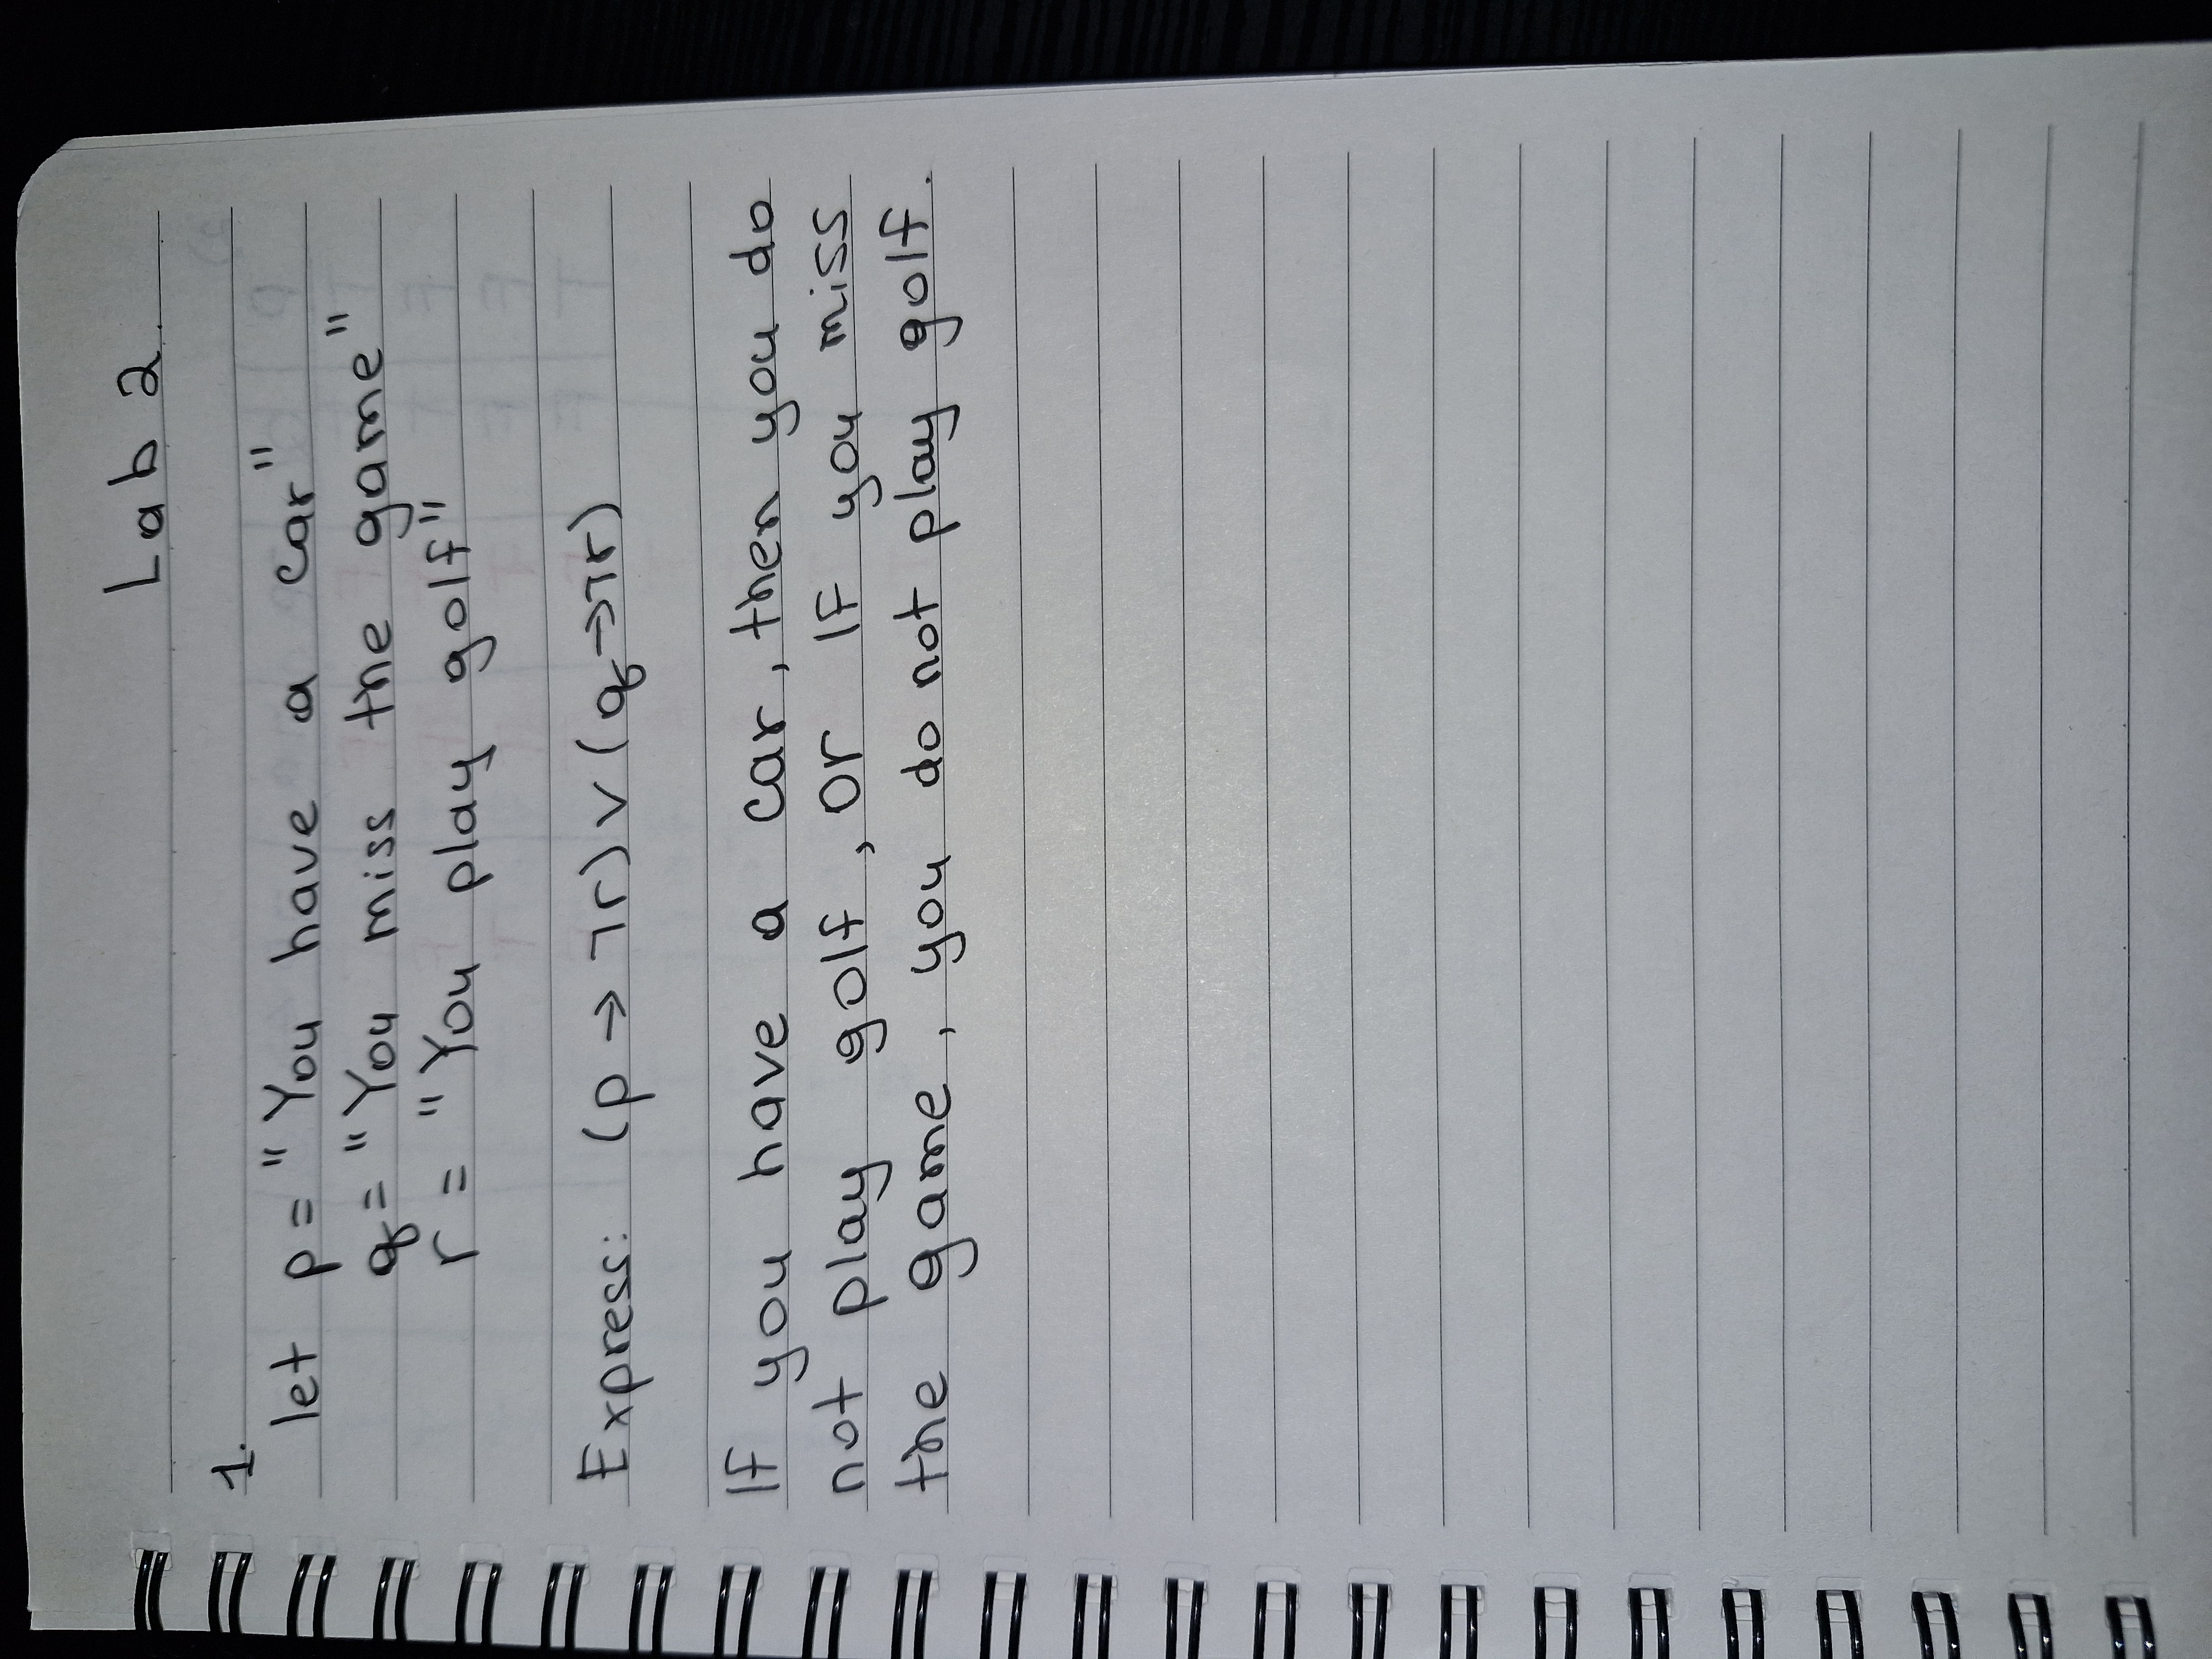 Lab 2.
1.
let p = "You have a car"
q = "You miss the game"
r = "You play golf"
Express: (p → ¬r) ∨ (q → ¬r)
If you have a car, then you do
not play golf, or If you miss
the game, you do not play golf.